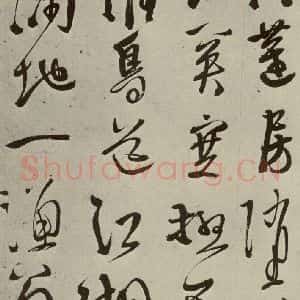 蓮房墜
塞極天
惟鳥道江湖
滿地一漁翁
Shufawang.CN